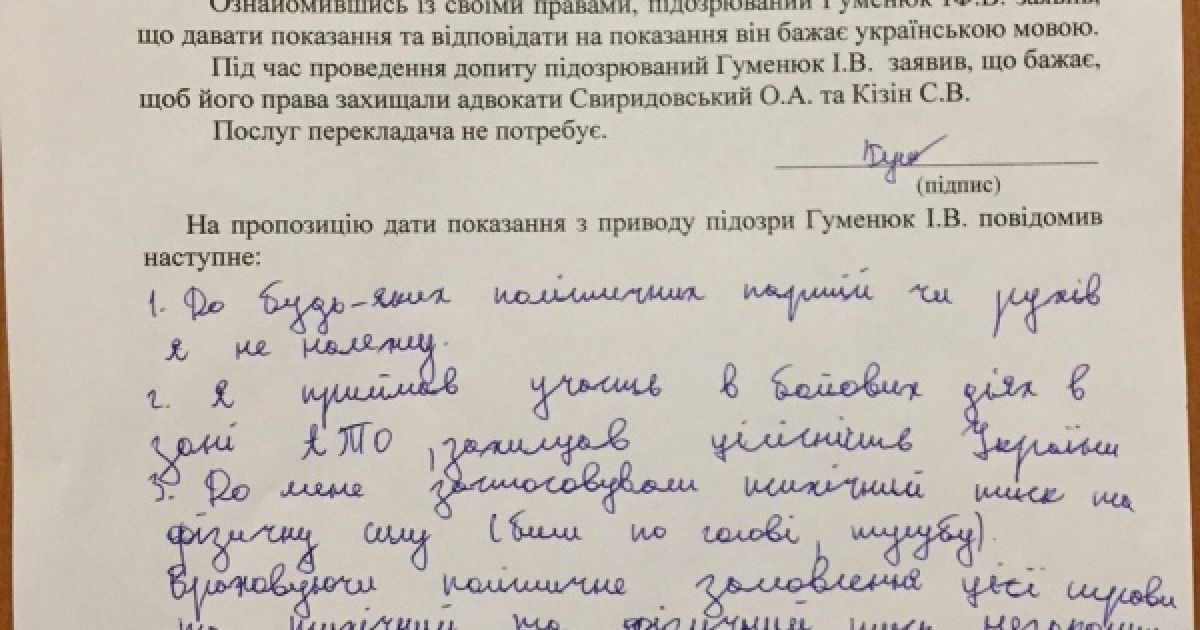 Ознайомившись із своїми правами, підозрюваний Гуменюк ІФ.В. заявив,
що давати показання та відповідати на показання він бажає українською мовою.
Під час проведення допиту підозрюваний Гуменюк І.В. заявив, що бажає,
щоб його права захищали адвокати Свиридовський О.А. та Кізін С.В.
Послуг перекладача не потребує.
(підпис)
На пропозицію дати показання з приводу підозри Гуменюк І.В. повідомив
наступне:
1. До будь-яких політичних партій чи рухів
я не належу.
2. Я приймав участь в бойових діях в
зоні АТО, захищав цілісність України
3. До мене застосовували психічний тиск та
фізичну силу (били по голові, тулубу).
Враховуючи політичне замовлення цієї справи
та психічний та фізичний тиск